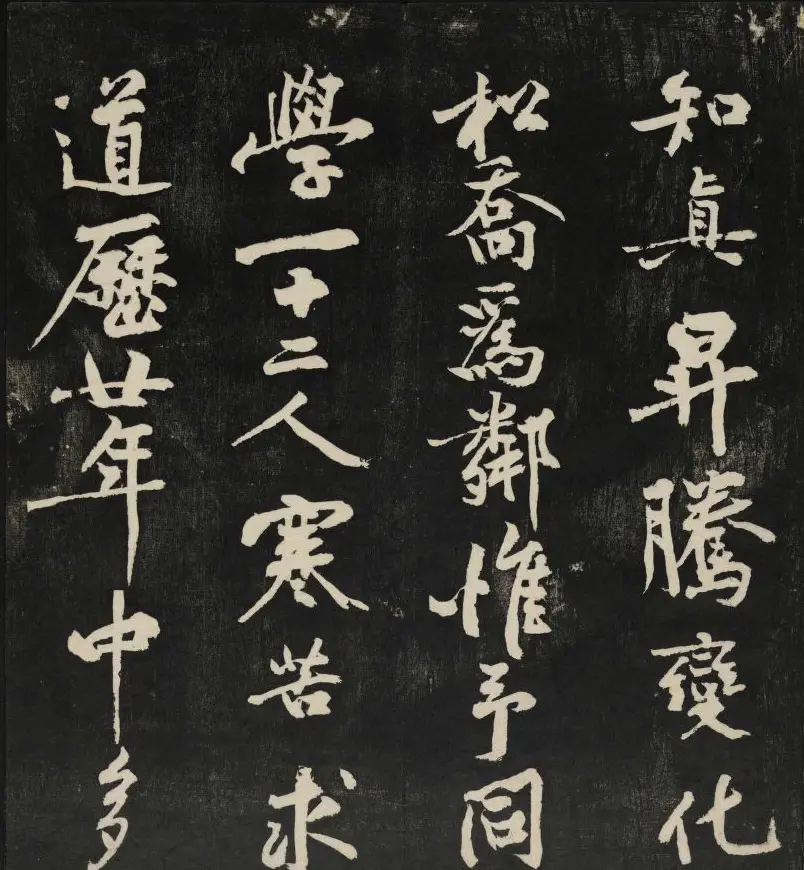 知真昇騰變化
松喬爲鄰惟予同
學一十二人寒苦求
道歷廿年中多